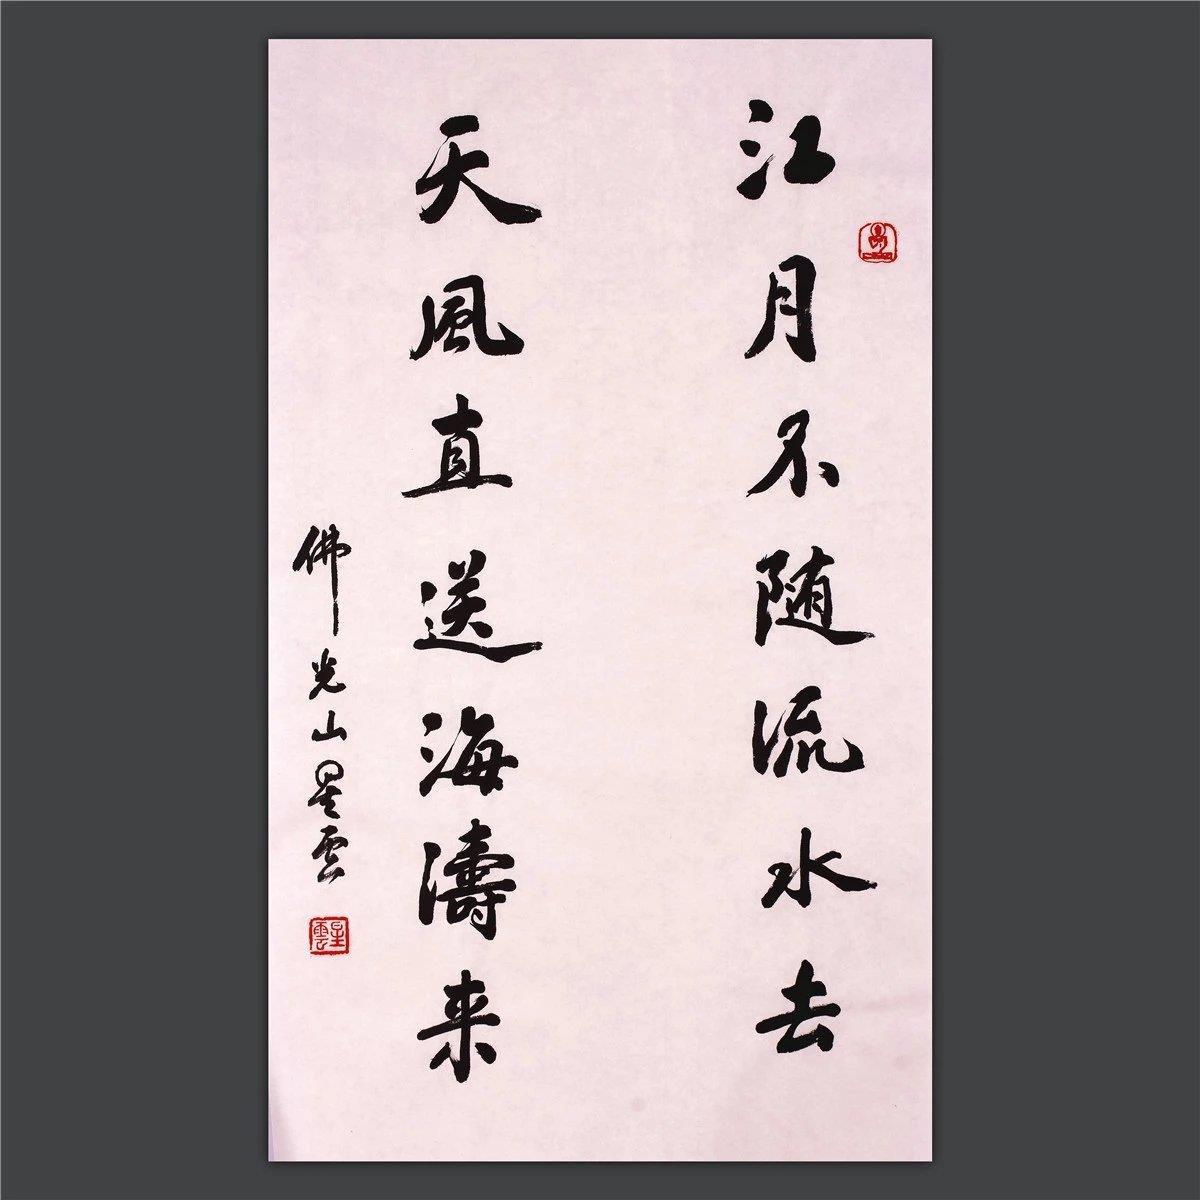 江月不随流水去
天風直送海濤来
佛光山星雲
星雲